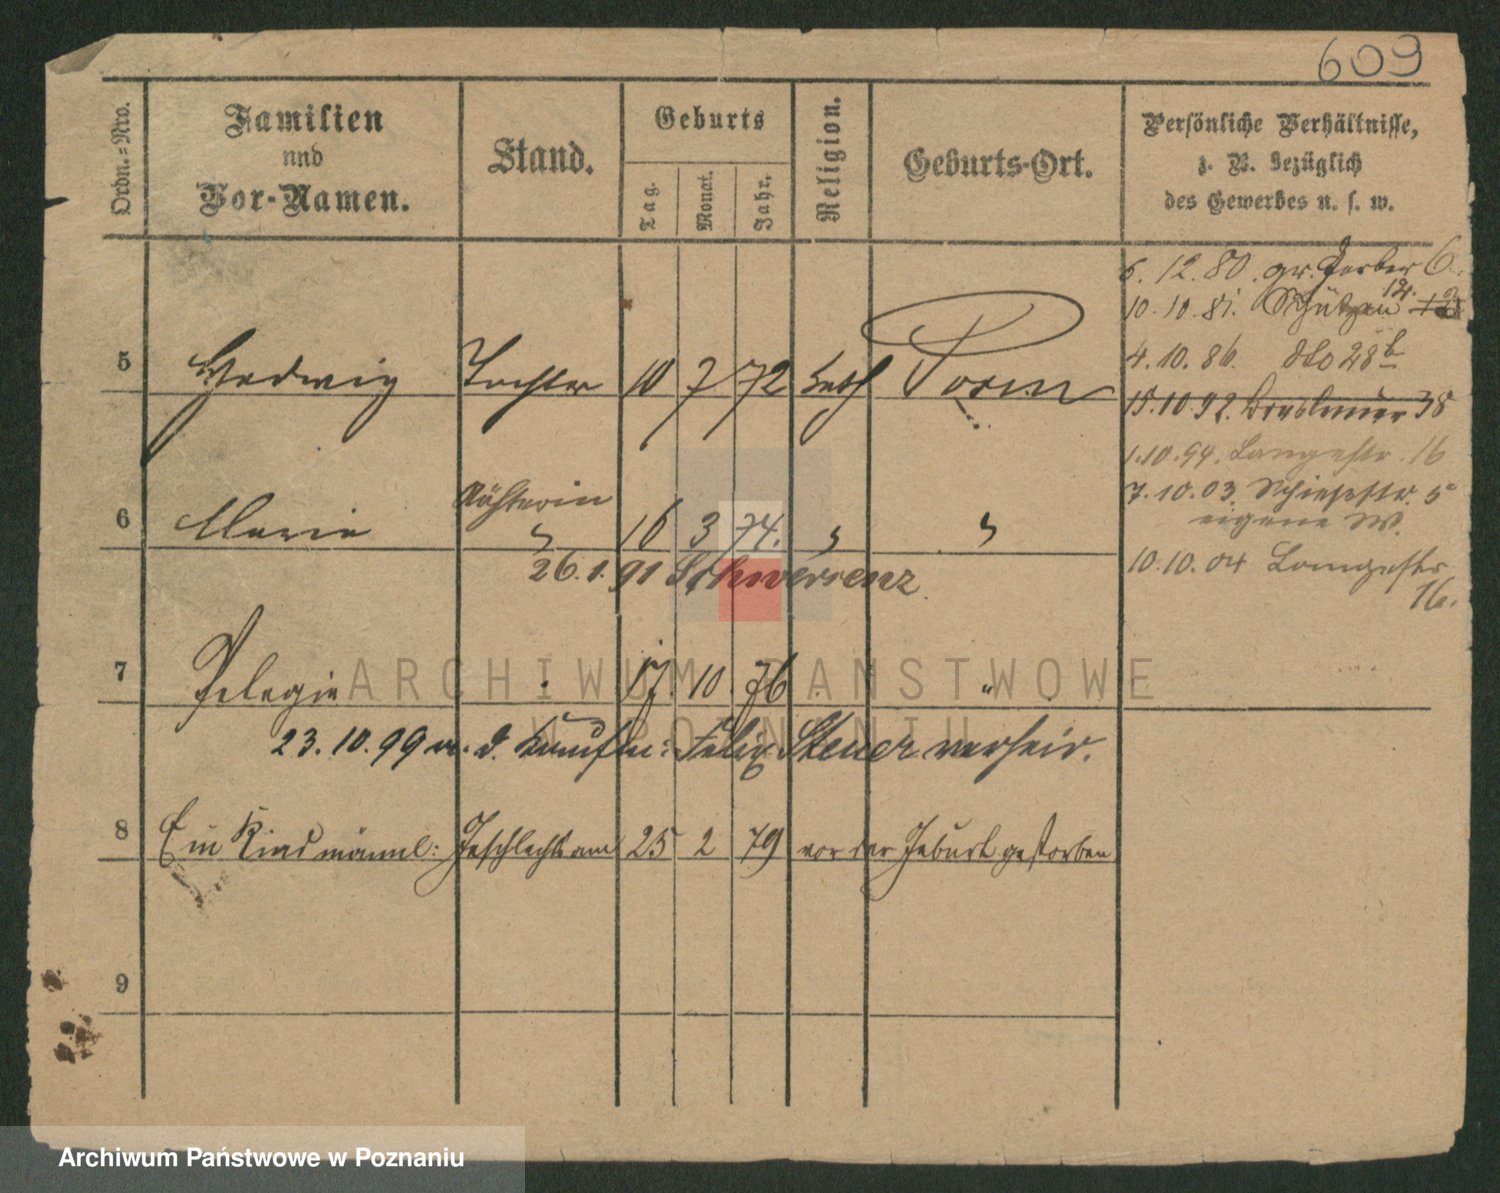 609
Ordn.-Nro.
Familien
und
Vor-Namen.
Stand.
Geburts
Tag.
Monat.
Jahr.
Religion.
Geburts-Ort.
Persönliche Verhältnisse,
z. B. bezüglich
des Gewerbes u. s. w.
6.12.80. gr. Gerber 6.
10.10.81. Schützen 14.
4.10.86. dto 28b
15.10.92. Breslauer 38
1.10.94. Langestr. 16
7.10.03. Schießstr. 5
eigene W.
10.10.04 Langestr.
16.
5 Hedwig Tochter 10 7 72 kath Posen
Nähterin
6 Marie " 16 3 74. " "
26.1.91 Schwersenz.
7 Pelagia " 17. 10. 76 "
23.10.99 m. d. Kaufm: Felix Steuer verheir.
8 Ein Kind männl: Geschlechts am 25 2 79 vor der Geburt gestorben
9
ARCHIWUM PAŃSTWOWE
W POZNANIU
Archiwum Państwowe w Poznaniu